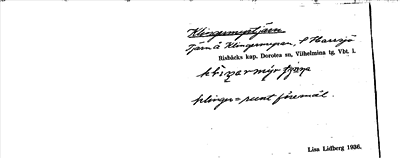 Klingermyrtjärn
Tjärn å Klingermyran, S Harrsjö
Risbäcks kap. Dorotea sn, Vilhelmina tg. Vbt. l.
klinger = runt föremål.
Lisa Lidberg 1936.